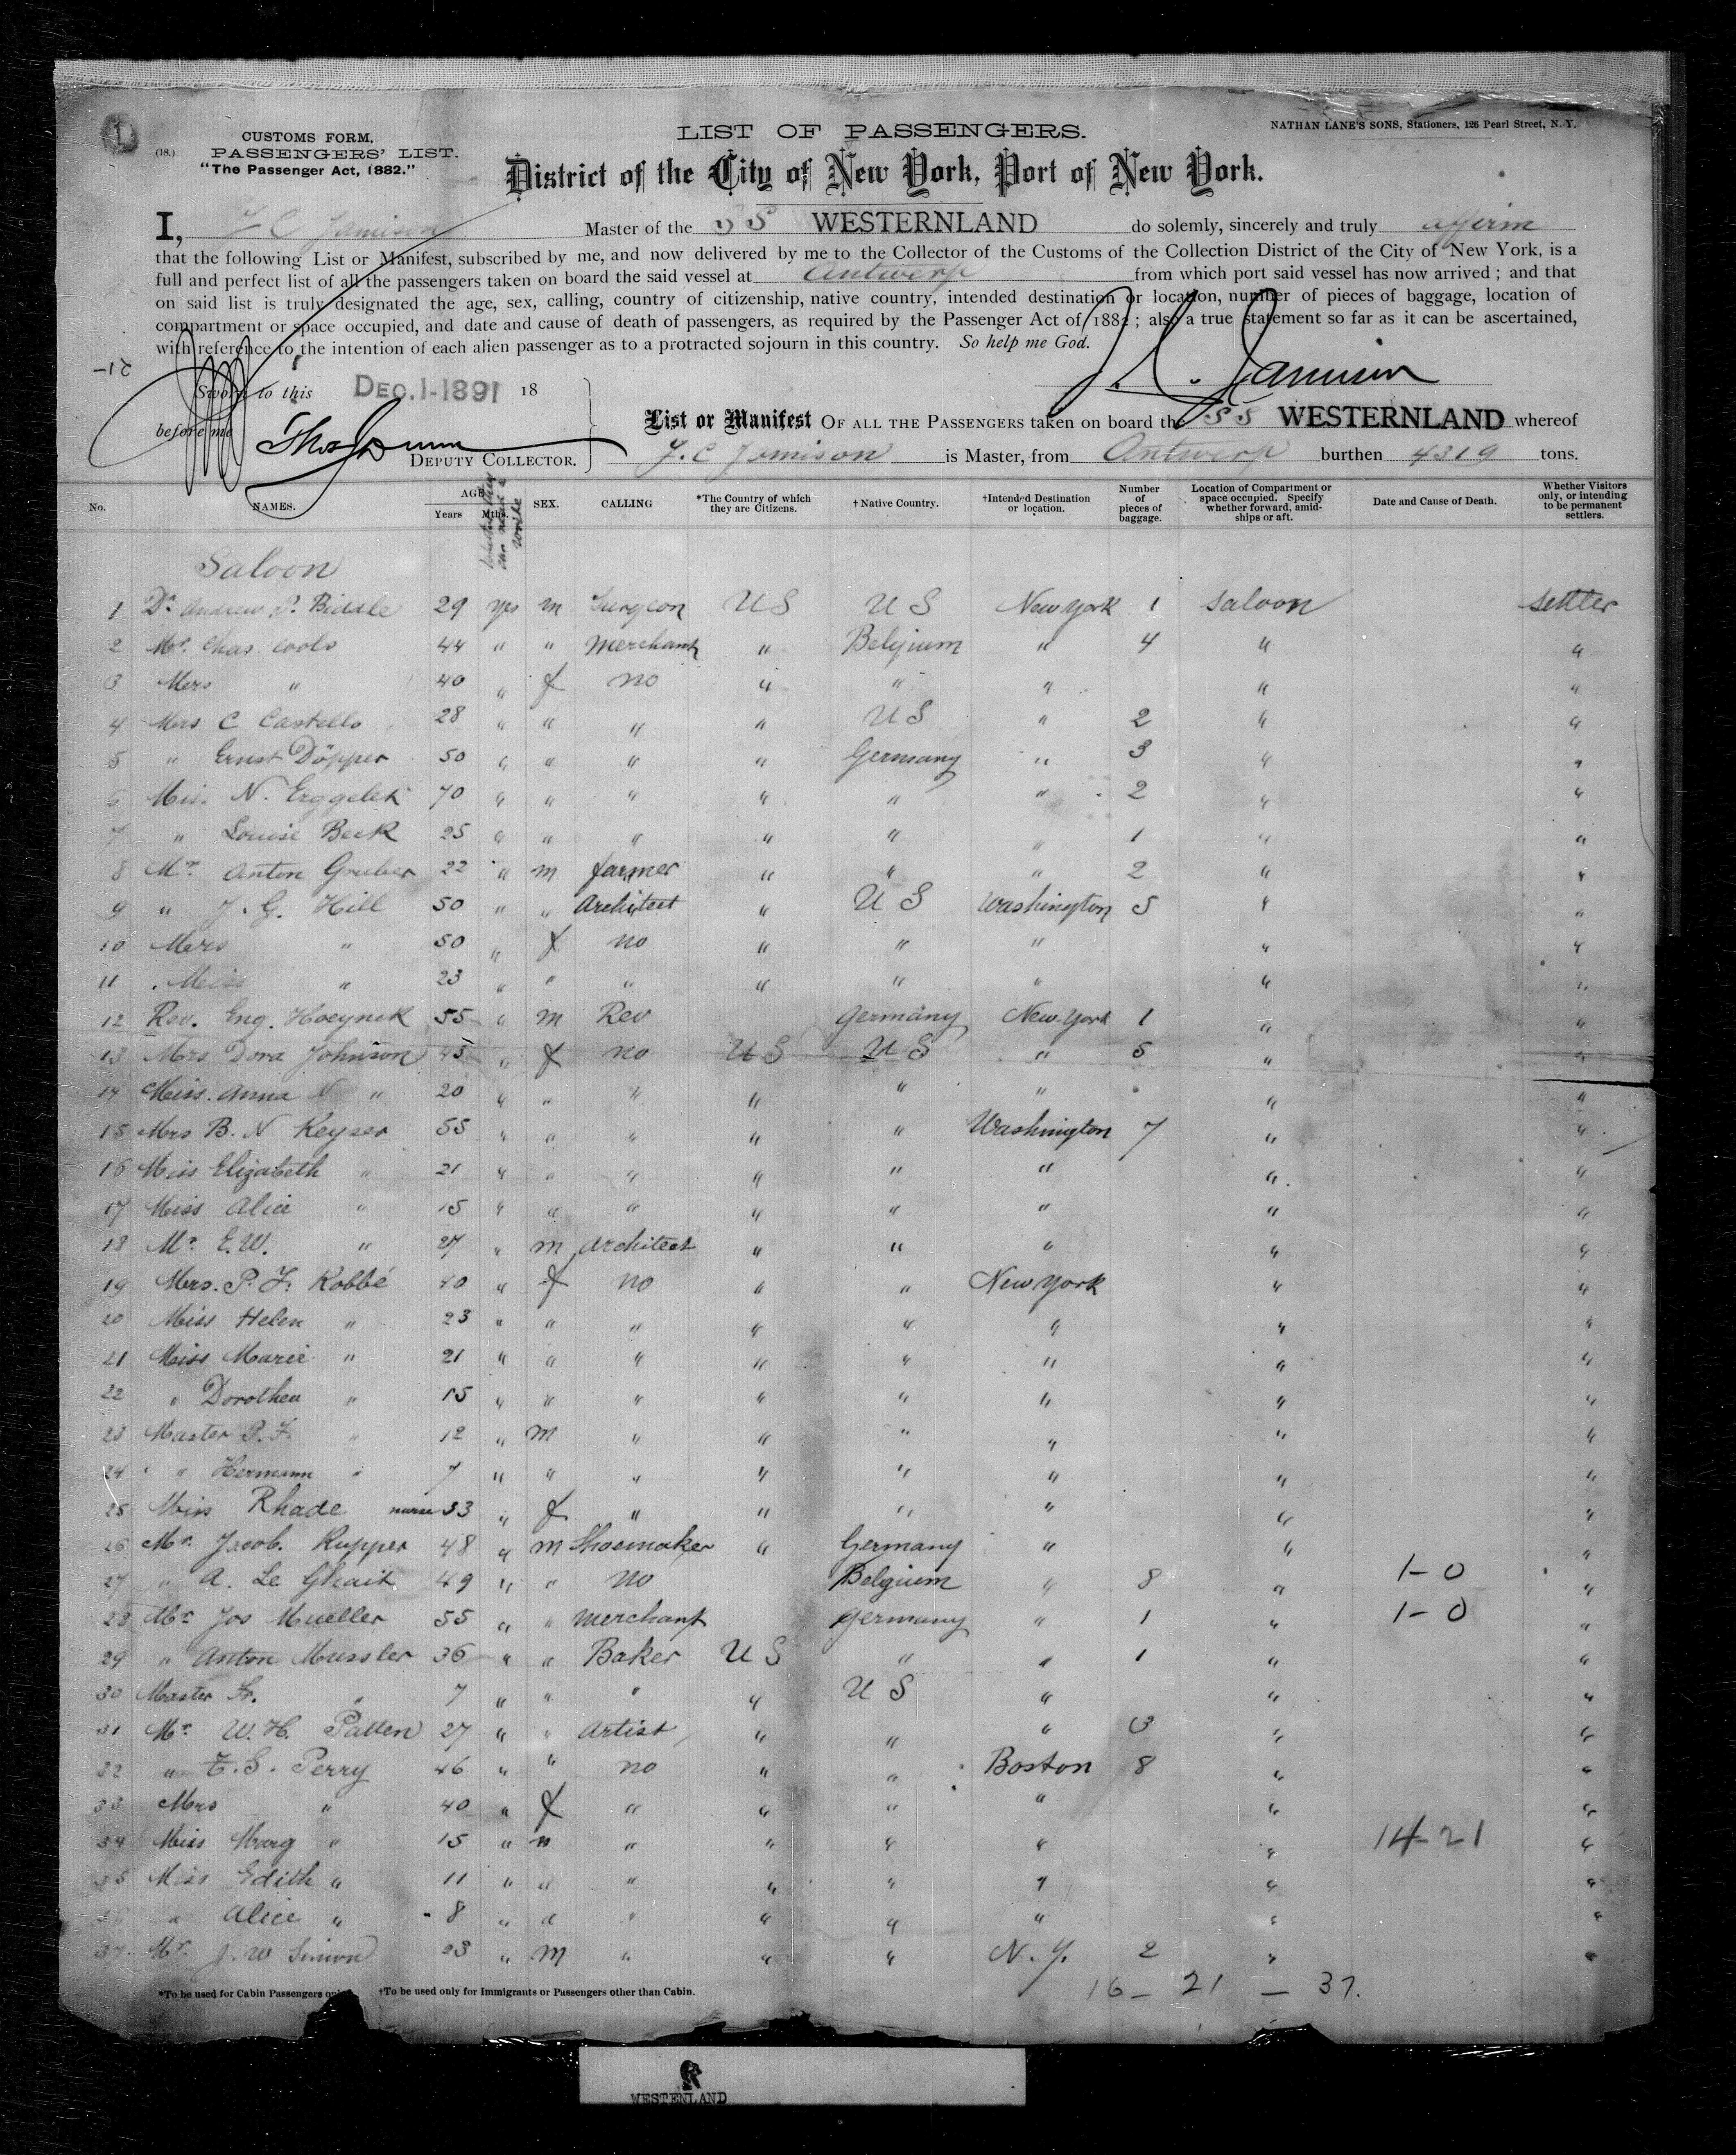 CUSTOMS FORM.
(18.) PASSENGERS' LIST.
"The Passenger Act, 1882."
LIST OF PASSENGERS.
NATHAN LANE'S SONS, Stationers, 126 Pearl Street, N.Y.
District of the City of New York, Port of New York.
I, J C Jamison Master of the SS WESTERNLAND do solemly, sincerely and truly affirm
that the following List or Manifest, subscribed by me, and now delivered by me to the Collector of the Customs of the Collection District of the City of New York, is a
full and perfect list of all the passengers taken on board the said vessel at Antwerp from which port said vessel has now arrived ; and that
on said list is truly designated the age, sex, calling, country of citizenship, native country, intended destination or location, number of pieces of baggage, location of
compartment or space occupied, and date and cause of death of passengers, as required by the Passenger Act of 1882 ; also a true statement so far as it can be ascertained,
with reference to the intention of each alien passenger as to a protracted sojourn in this country. So help me God.
Sworn to this DEC. 1-1891 18
J. C. Jamison
before me
DEPUTY COLLECTOR.
List or Manifest OF ALL THE PASSENGERS taken on board the SS WESTERNLAND whereof
J. C Jamison is Master, from Antwerp burthen 4319 tons.
No. NAMES. AGE Years Mths. whether they can read & write SEX. CALLING *The Country of which they are Citizens. †Native Country. †Intended Destination or location. Number of pieces of baggage. Location of Compartment or space occupied. Specify whether forward, amidships or aft. Date and Cause of Death. Whether Visitors only, or intending to be permanent settlers.
Saloon
1 Dr Andrew P. Biddle 29 yes m Surgeon U S U S New York 1 Saloon Settler
2 Mr. Chas. Cools 44 " " Merchant " Belgium " 4 " "
3 Mers " 40 " f no " " " " "
4 Mrs C Castello 28 " " " " U S " 2 " "
5 " Ernst Döpper 50 " " " " Germany " 3 " "
6 Miss N. Erggelet 70 " " " " " " 2 " "
7 " Louise Beck 25 " " " " " " 1 " "
8 Mr Anton Gruber 22 " m farmer " " " 2 " "
9 " J. G. Hill 50 " " Architect " U S Washington 5 " "
10 Mers " 50 " f no " " " " "
11 Miss " 23 " " " " " " " "
12 Rev. Eng. Hoeynck 55 " m Rev Germany New York 1 " "
13 Mrs Dora Johnson 45 " f no U S U S " 5 " "
14 Miss Anna N " 20 " " " " " " " "
15 Mrs B. N Keyser 55 " " " " " Washington 7 " "
16 Miss Elizabeth " 21 " " " " " " " "
17 Miss Alice " 15 " " " " " " " "
18 Mr E.W. " 27 " m Architect " " " " "
19 Mers. P. F. Robbé 40 " f no " " New York " "
20 Miss Helen " 23 " " " " " " " "
21 Miss Marie " 21 " " " " " " " "
22 " Dorothea " 15 " " " " " " " "
23 Master P. F. " 12 " m " " " " " "
24 " Hermann " 7 " " " " " " " "
25 Miss Rhade nurse 33 " f " " " " " "
26 Mr. Jacob. Rupper 48 " m Shoemaker " Germany " " "
27 " A. Le Ghait 49 " " no Belgium " 8 " 1-0 "
28 Mr Jos Mueller 55 " " merchant Germany " 1 " 1-0 "
29 " Anton Mussler 36 " " Baker U S " " 1 " "
30 Master Fr. " 7 " " " " U S " " "
31 Mr W. H. Patten 27 " " Artist " " " 3 " "
32 " T. S. Perry 46 " " no " " Boston 8 " "
33 Mrs " 40 " f " " " " " "
34 Miss Marg " 15 " m " " " " " 14-21 "
35 Miss Edith " 11 " " " " " " " "
36 " Alice " 8 " " " " " " " "
37 Mr. J. W Simon 23 " m " " " N. Y. 2 " "
16 - 21 - 37.
*To be used for Cabin Passengers †To be used only for Immigrants or Passengers other than Cabin.
WESTENLAND